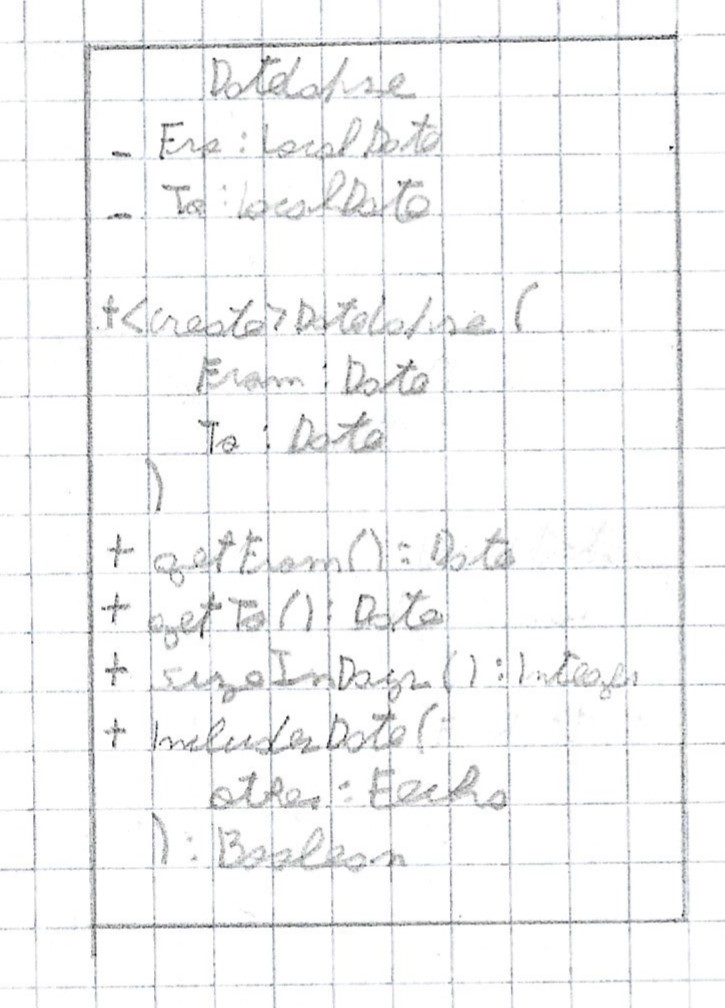 DateLapse
- From: LocalDate
- To: LocalDate
+ <create> DateLapse (
From: Date
To: Date
)
+ getFrom(): Date
+ getTo(): Date
+ sizeInDays(): Integer
+ includesDate(
other: Fecha
): Boolean